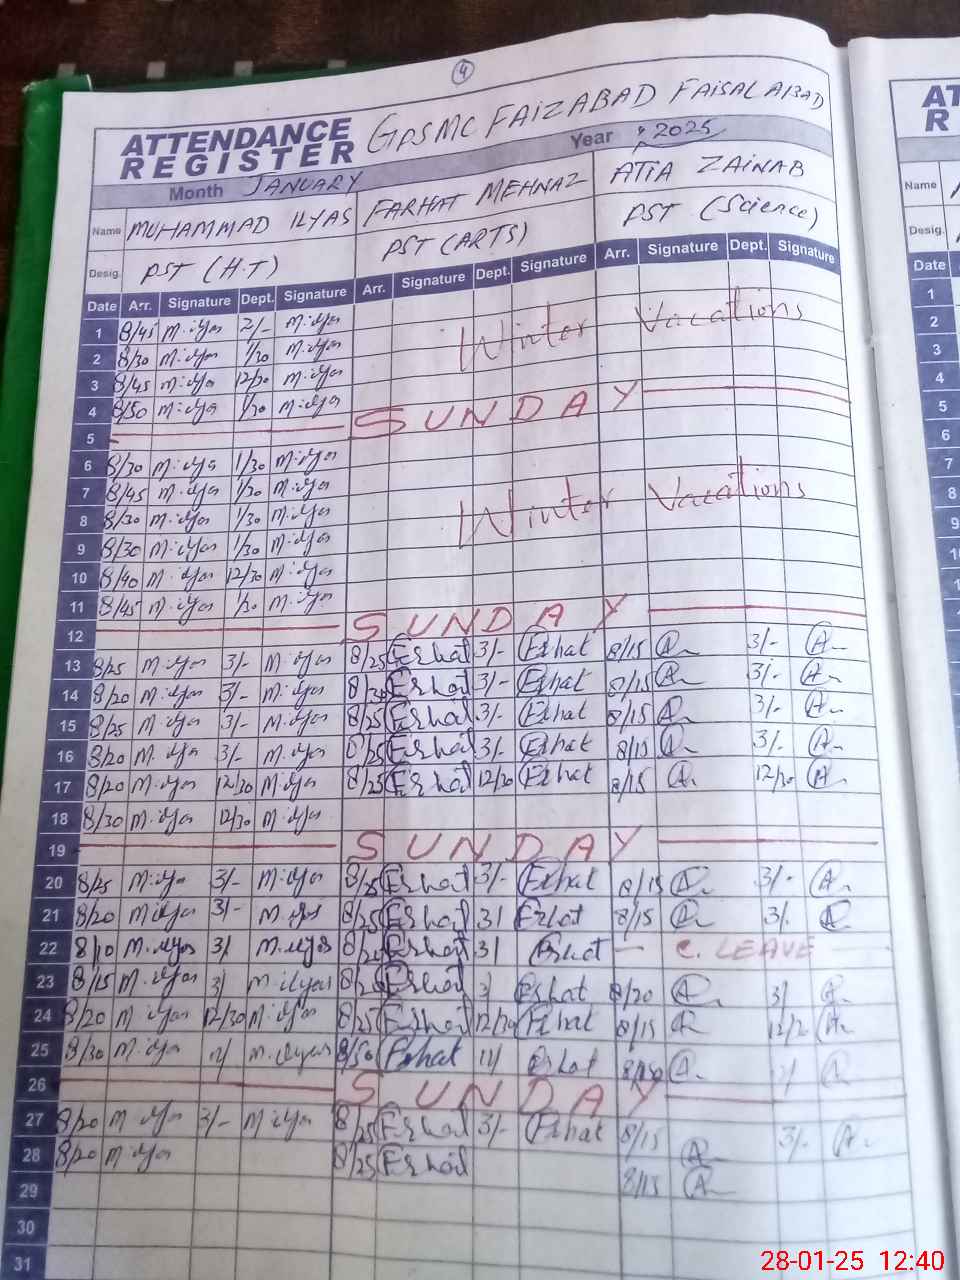 4
ATTENDANCE REGISTER GPSMC FAIZABAD FAISALABAD
Month JANUARY Year 2025
Name MUHAMMAD ILYAS FARHAT MEHNAZ ATIA ZAINAB
Desig. PST (H.T) PST (ARTS) PST (Science)
Date Arr. Signature Dept. Signature Arr. Signature Dept. Signature Arr. Signature Dept. Signature
1 8/45 M.ilyas 2/- M.ilyas Winter Vacations
2 8/30 M.ilyas 1/30 M.ilyas
3 8/45 M.ilyas 12/30 M.ilyas
4 8/50 M.ilyas 1/30 M.ilyas
5 SUNDAY
6 8/30 M.ilyas 1/30 M.ilyas
7 8/45 M.ilyas 1/30 M.ilyas Winter Vacations
8 8/30 M.ilyas 1/30 M.ilyas
9 8/30 M.ilyas 1/30 M.ilyas
10 8/40 M.ilyas 12/30 M.ilyas
11 8/45 M.ilyas 1/30 M.ilyas
12 SUNDAY
13 8/25 M.ilyas 3/- M.ilyas 8/25 3/- 8/15 3/-
14 8/20 M.ilyas 3/- M.ilyas 3/- 8/15 3/-
15 8/25 M.ilyas 3/- M.ilyas 8/25 3/- 8/15 3/-
16 8/20 M.ilyas 3/- M.ilyas 8/25 3/- 8/15 3/-
17 8/20 M.ilyas 12/30 M.ilyas 8/25 12/30 8/15 12/30
18 8/30 M.ilyas 12/30 M.ilyas
19 SUNDAY
20 8/25 M.ilyas 3/- M.ilyas 8/25 3/- 8/15 3/-
21 8/20 M.ilyas 3/- M.ilyas 8/25 3/ 8/15 3/-
22 8/10 M.ilyas 3/ M.ilyas 3/ C. LEAVE
23 8/15 M.ilyas 3/ M.ilyas 3/ 8/20 3/
24 8/20 M.ilyas 12/30 M.ilyas 8/25 12/30 8/15
25 8/30 M.ilyas M.ilyas 8/50
26 SUNDAY
27 8/20 M.ilyas 3/- M.ilyas 8/25 3/- 8/15 3/-
28 8/20 M.ilyas 8/25 8/15
29
30
31
AT
R
Name
Desig.
Date
1
2
3
4
5
6
7
8
9
10
11
28-01-25 12:40